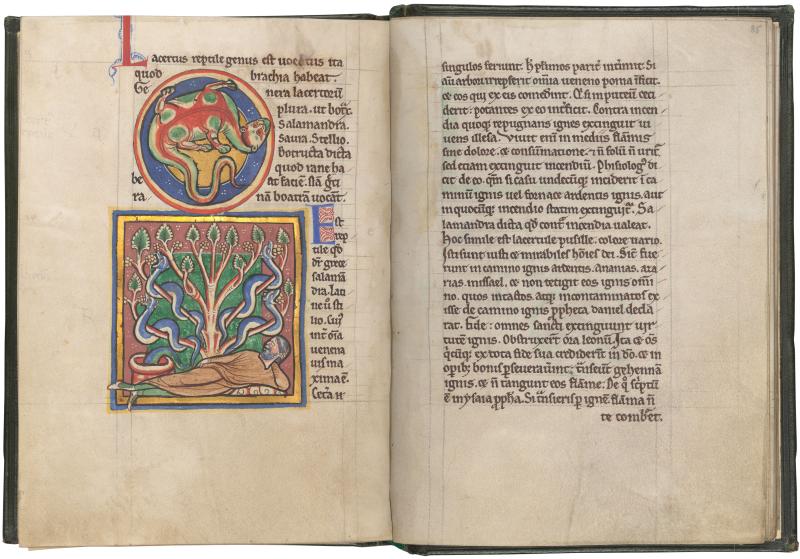 Lacertus reptile genus est uocatus ita
quod brachia habeat.
Ge nera lacertoꝝ
plura. ut botꝛax.
Salamandra.
Saura. Stellio.
botructa dicta
quod rane ha
be at faciē.
ra nā boatrā uocāt.
Est
rep
tile qd̄
dr̄ grece
salamā
dra. Lati
ne ū sti
lio. Cuꝰ
int̄ oīa
uenena
uis ma
xima ē.
Cet̄a ii
85
singulos feriunt. H plimos parit̄ int̄imit. Si
arbori irrepserit om̄ia ueneno poma īficit.
⁊ eos qui ex eis comedīt. Q̄ si in puteū ceci
derit: potantes ex eo int̄ficit. Contra incen
dia quoq; repugnans ignes extinguit. ui
uens illesa. Viuit enī in mediis flāmis
sine dolore. ⁊ consūmatione. ⁊ ñ solū ñ urit̄
sed etiam extinguit incendiū. Physiologꝰ di
cit de eo. qm̄ si casu undecūq; inciderit ī ca
minū ignis uel fornace ardentis ignis. aut
in quocūq; incendio statim extinguit̄. Sa
lamandra dicta qd̄ cont̄ incendia ualeat.
Hoc simile est lacertule pusille. colore uario.
Isti sunt iusti ⁊ mirabiles hoīes dei. Sic̄ fue
runt in camino ignis ardentis. Ananias. aza
rias. missael. ⁊ non tetigit eos ignis om̄i
no. quos intactos. atq; incontaminatos ex
isse de camino ignis ppheta daniel declā
rat. fide: omnes sancti extinguunt uir
tutē ignis. Obstruxerūt ora leonū. Ita ⁊ oīs
q̄cūq; ex tota fide sua crediderit in dō. ⁊ in
opib; bonis pseuerauint; t̄nseūt gehennā
ignis. ⁊ ñ tangunt eos flāme. De q̄ sc̄ptū
ē in ysaia ppha. Si t̄nsieris p ignē flāma ñ
te comburet.